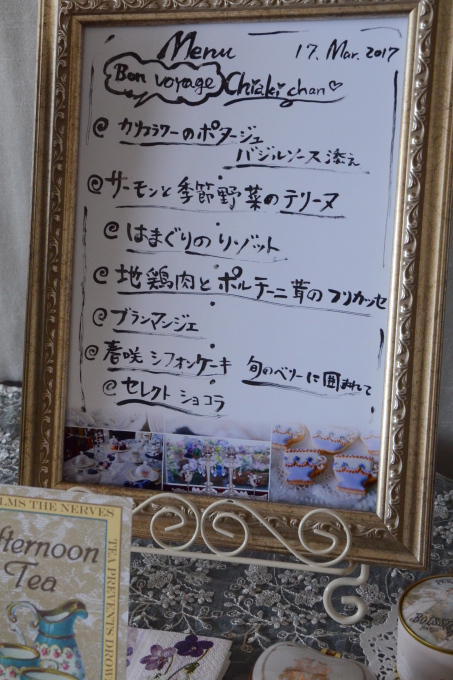 Menu 17. Mar. 2017
Bon voyage Chiaki chan♡
@ カリフラワーのポタージュ
バジルソース添え
@ サーモンと季節野菜のテリーヌ
@ はまぐりのリゾット
@ 地鶏肉とポルチーニ茸のフリカッセ
@ ブランマンジェ
@ 春咲シフォンケーキ 旬のベリーに囲まれて
@ セレクトショコラ
LMS THE NERVES
TEA PREVENTS DROW
fternoon
Tea